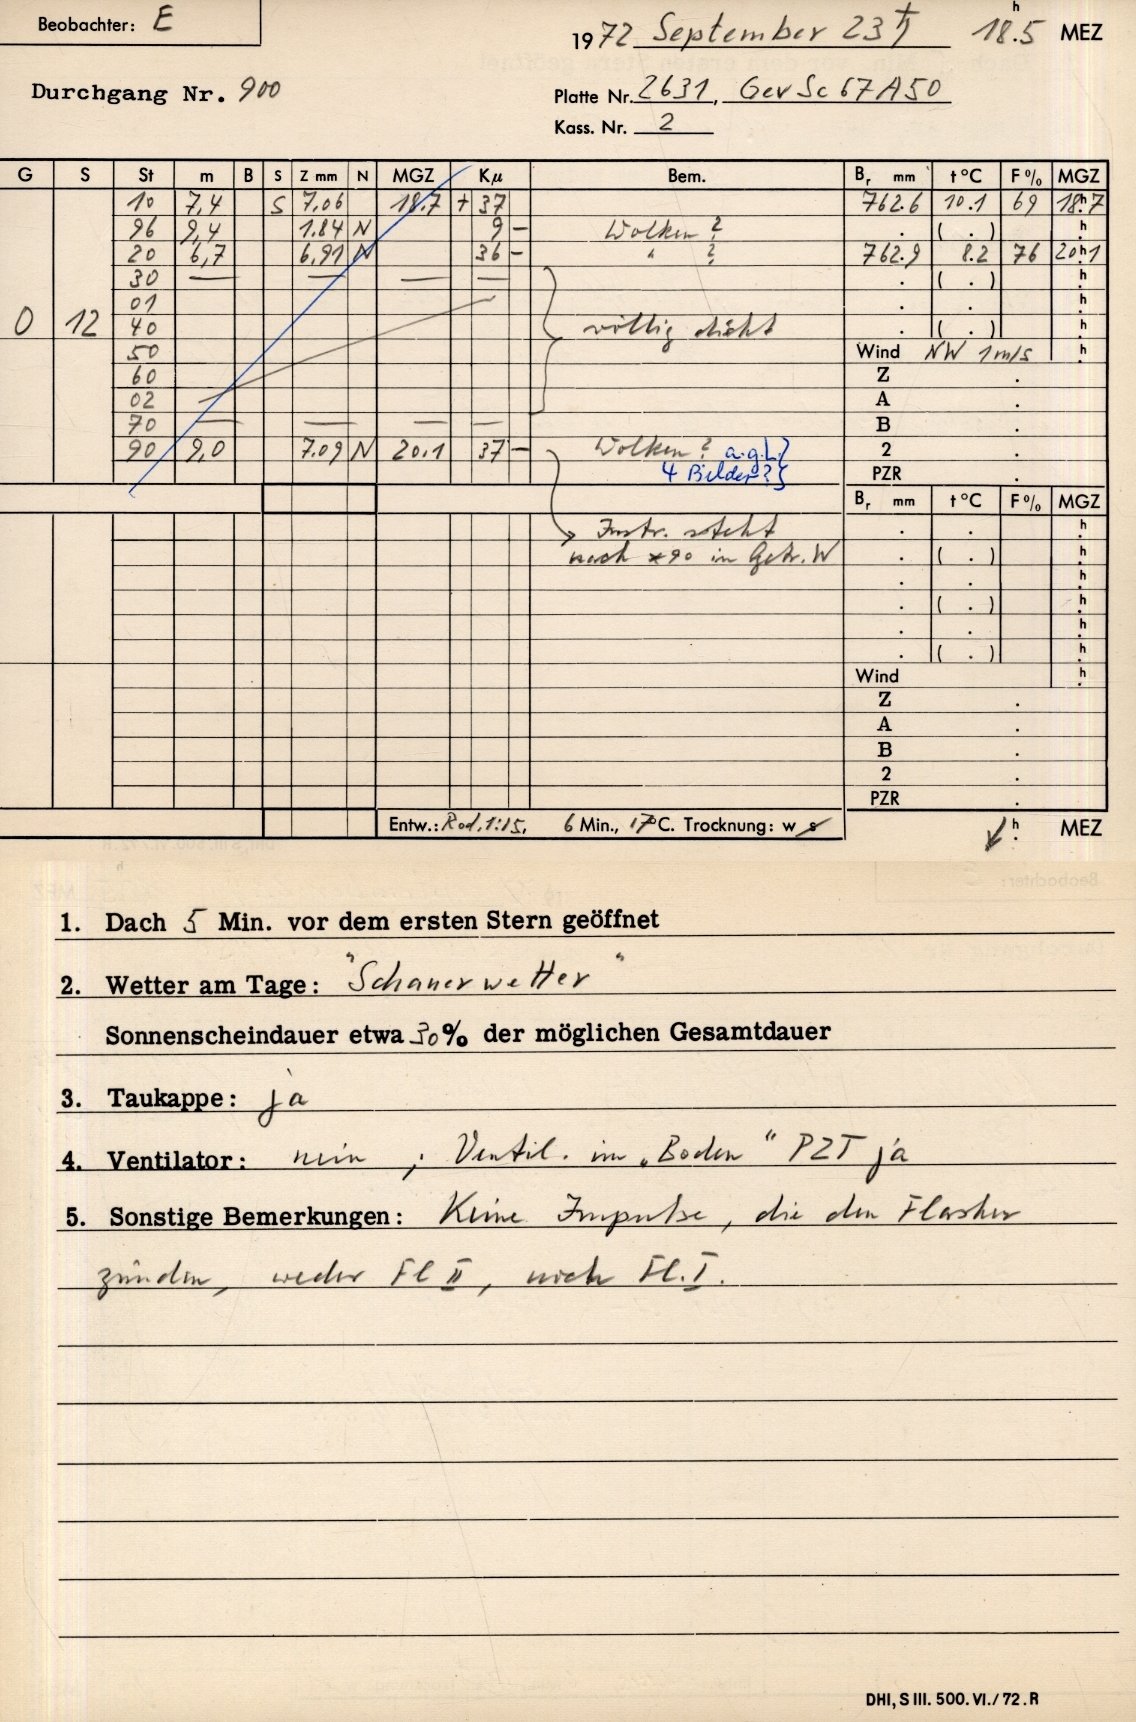 Beobachter: E
1972 September 23 ♄ 18.5 h MEZ
Durchgang Nr. 900
Platte Nr. 2631, Gev Sc 67A50
Kass. Nr. 2
G S St m B S Z mm N MGZ Kµ Bem. Br mm t°C F% MGZ
10 7,4 S 7.06 18.7 + 37 762.6 10.1 69 18h.7
96 9,4 1.84 N 9 - Wolken ? . ( . ) h.
20 6,7 6,91 N 36 - " ? 762.9 8.2 76 20h.1
30 — — — — . ( . ) h.
01 . . h.
0 12 40 völlig dicht . ( . ) h.
50 Wind NW 1 m/s h.
60 Z .
02 A .
70 — — — — B .
90 9,0 7.09 N 20.1 37 - Wolken ? a.g.L. 2 .
4 Bilder? PZR .
Br mm t°C F% MGZ
Instr. steht . . h.
nach *90 in Geb. W . ( . ) h.
. . h.
. ( . ) h.
. . h.
. ( . ) h.
Wind h.
Z .
A .
B .
2 .
PZR .
Entw.: Rod. 1:15, 6 Min., 17°C. Trocknung: w s h. MEZ
1. Dach 5 Min. vor dem ersten Stern geöffnet
2. Wetter am Tage: "Schauerwetter"
Sonnenscheindauer etwa 30% der möglichen Gesamtdauer
3. Taukappe: ja
4. Ventilator: nein, Ventil. im „Boden" PZT ja
5. Sonstige Bemerkungen: Keine Impulse, die den Flasher
zünden, weder Fl II, noch Fl. I.
DHI, S III. 500. VI./72. R